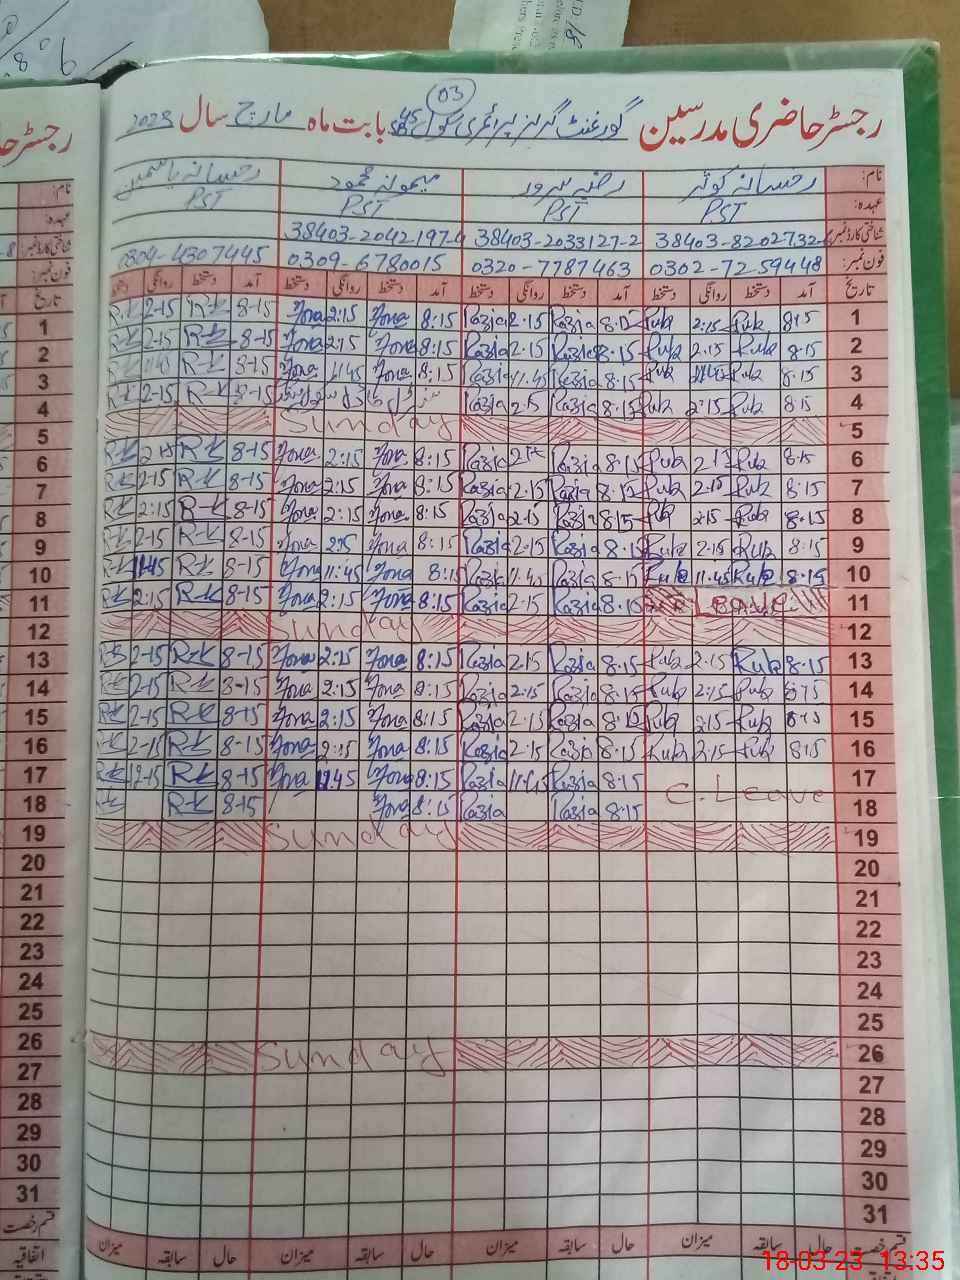 03
رجسٹر حاضری مدرسین گورنمنٹ گرلز پرائمری سکول بابت ماہ مارچ سال 2023
نام: رخسانہ کوثر رضیہ سرور میمونہ محمود رخسانہ یاسمین
عہدہ: PST PST PST PST
شناختی کارڈ نمبر: 38403-8202732- 38403-2033127-2 38403-2042197-4
فون نمبر: 0302-7259448 0320-7787463 0309-6780015 0304-4307445
تاریخ آمد دستخط روانگی دستخط آمد دستخط روانگی دستخط آمد دستخط روانگی دستخط آمد دستخط روانگی دستخط
1 8-15 Rub 2:15 Rub 8-15 Razia 2-15 Razia 8:15 Mona 2:15 Mona 8-15 R-K 2-15 R-K
2 8-15 Rub 2-15 Rub 8-15 Razia 2-15 Razia 8:15 Mona 2:15 Mona 8-15 R-K 2-15 R-K
3 8-15 Rub 11:45 Rub 8-15 Razia 11-45 Razia 8:15 Mona 11:45 Mona 8-15 R-K 11:45 R-K
4 8-15 Rub 2-15 Rub 8-15 Razia 2-15 Razia 8-15 R-K 2-15 R-K
5 Sunday
6 8-15 Rub 2-15 Rub 8-15 Razia Razia 8:15 Mona 2:15 Mona 8-15 R-K 2-15 R-K
7 8-15 Rub 2-15 Rub 8-15 Razia 2-15 Razia 8:15 Mona 2:15 Mona 8-15 R-K 2-15 R-K
8 8-15 Rub 2-15 Rub 8-15 Razia 2-15 Razia 8:15 Mona 2:15 Mona 8-15 R-K 2:15 R-K
9 8-15 Rub 2-15 Rub 8-15 Razia 2-15 Razia 8:15 Mona 2:15 Mona 8-15 R-K 2-15 R-K
10 8-15 Rub 11-45 Rub 8-15 Razia 11-45 Razia 8:15 Mona 11:45 Mona 8-15 R-K 11:45 R-K
11 Leave 8-15 Razia 2-15 Razia 8:15 Mona 2:15 Mona 8-15 R-K 2:15 R-K
12 Sunday
13 8-15 Rub 2-15 Rub 8-15 Razia 2-15 Razia 8:15 Mona 2:15 Mona 8-15 R-K 2-15 R-K
14 8-15 Rub 2-15 Rub 8-15 Razia 2-15 Razia 8:15 Mona 2:15 Mona 8-15 R-K 2-15 R-K
15 8-15 Rub 2-15 Rub 8-15 Razia 2-15 Razia 8:15 Mona 2:15 Mona 8-15 R-K 2-15 R-K
16 8-15 Rub 2-15 Rub 8-15 Razia 2-15 Razia 8:15 Mona 2:15 Mona 8-15 R-K 2-15 R-K
17 C. Leave 8-15 Razia 11-45 Razia 8:15 Mona 11:45 Mona 8-15 R-K 12-15 R-K
18 8-15 Razia Razia 8:15 Mona 8-15 R-K R-K
19 Sunday
20
21
22
23
24
25
26 Sunday
27
28
29
30
31
قسم رخصت حال سابقہ میزان حال سابقہ میزان حال سابقہ میزان حال سابقہ میزان
اتفاقیہ
18-03-23 13:35